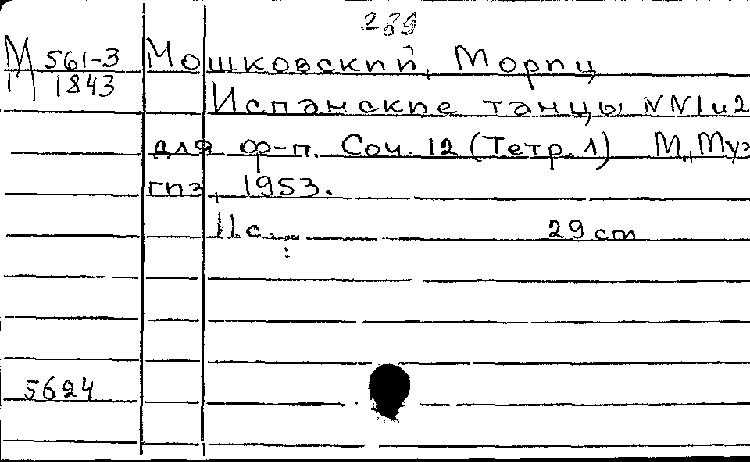 239
М 561-3 Мошковский, Мориц
1843
Испанские танцы NN1и2
для ф-п. Соч. 12 (Тетр. 1) М., Муз
гиз, 1953.
11с. 29 cm
5624